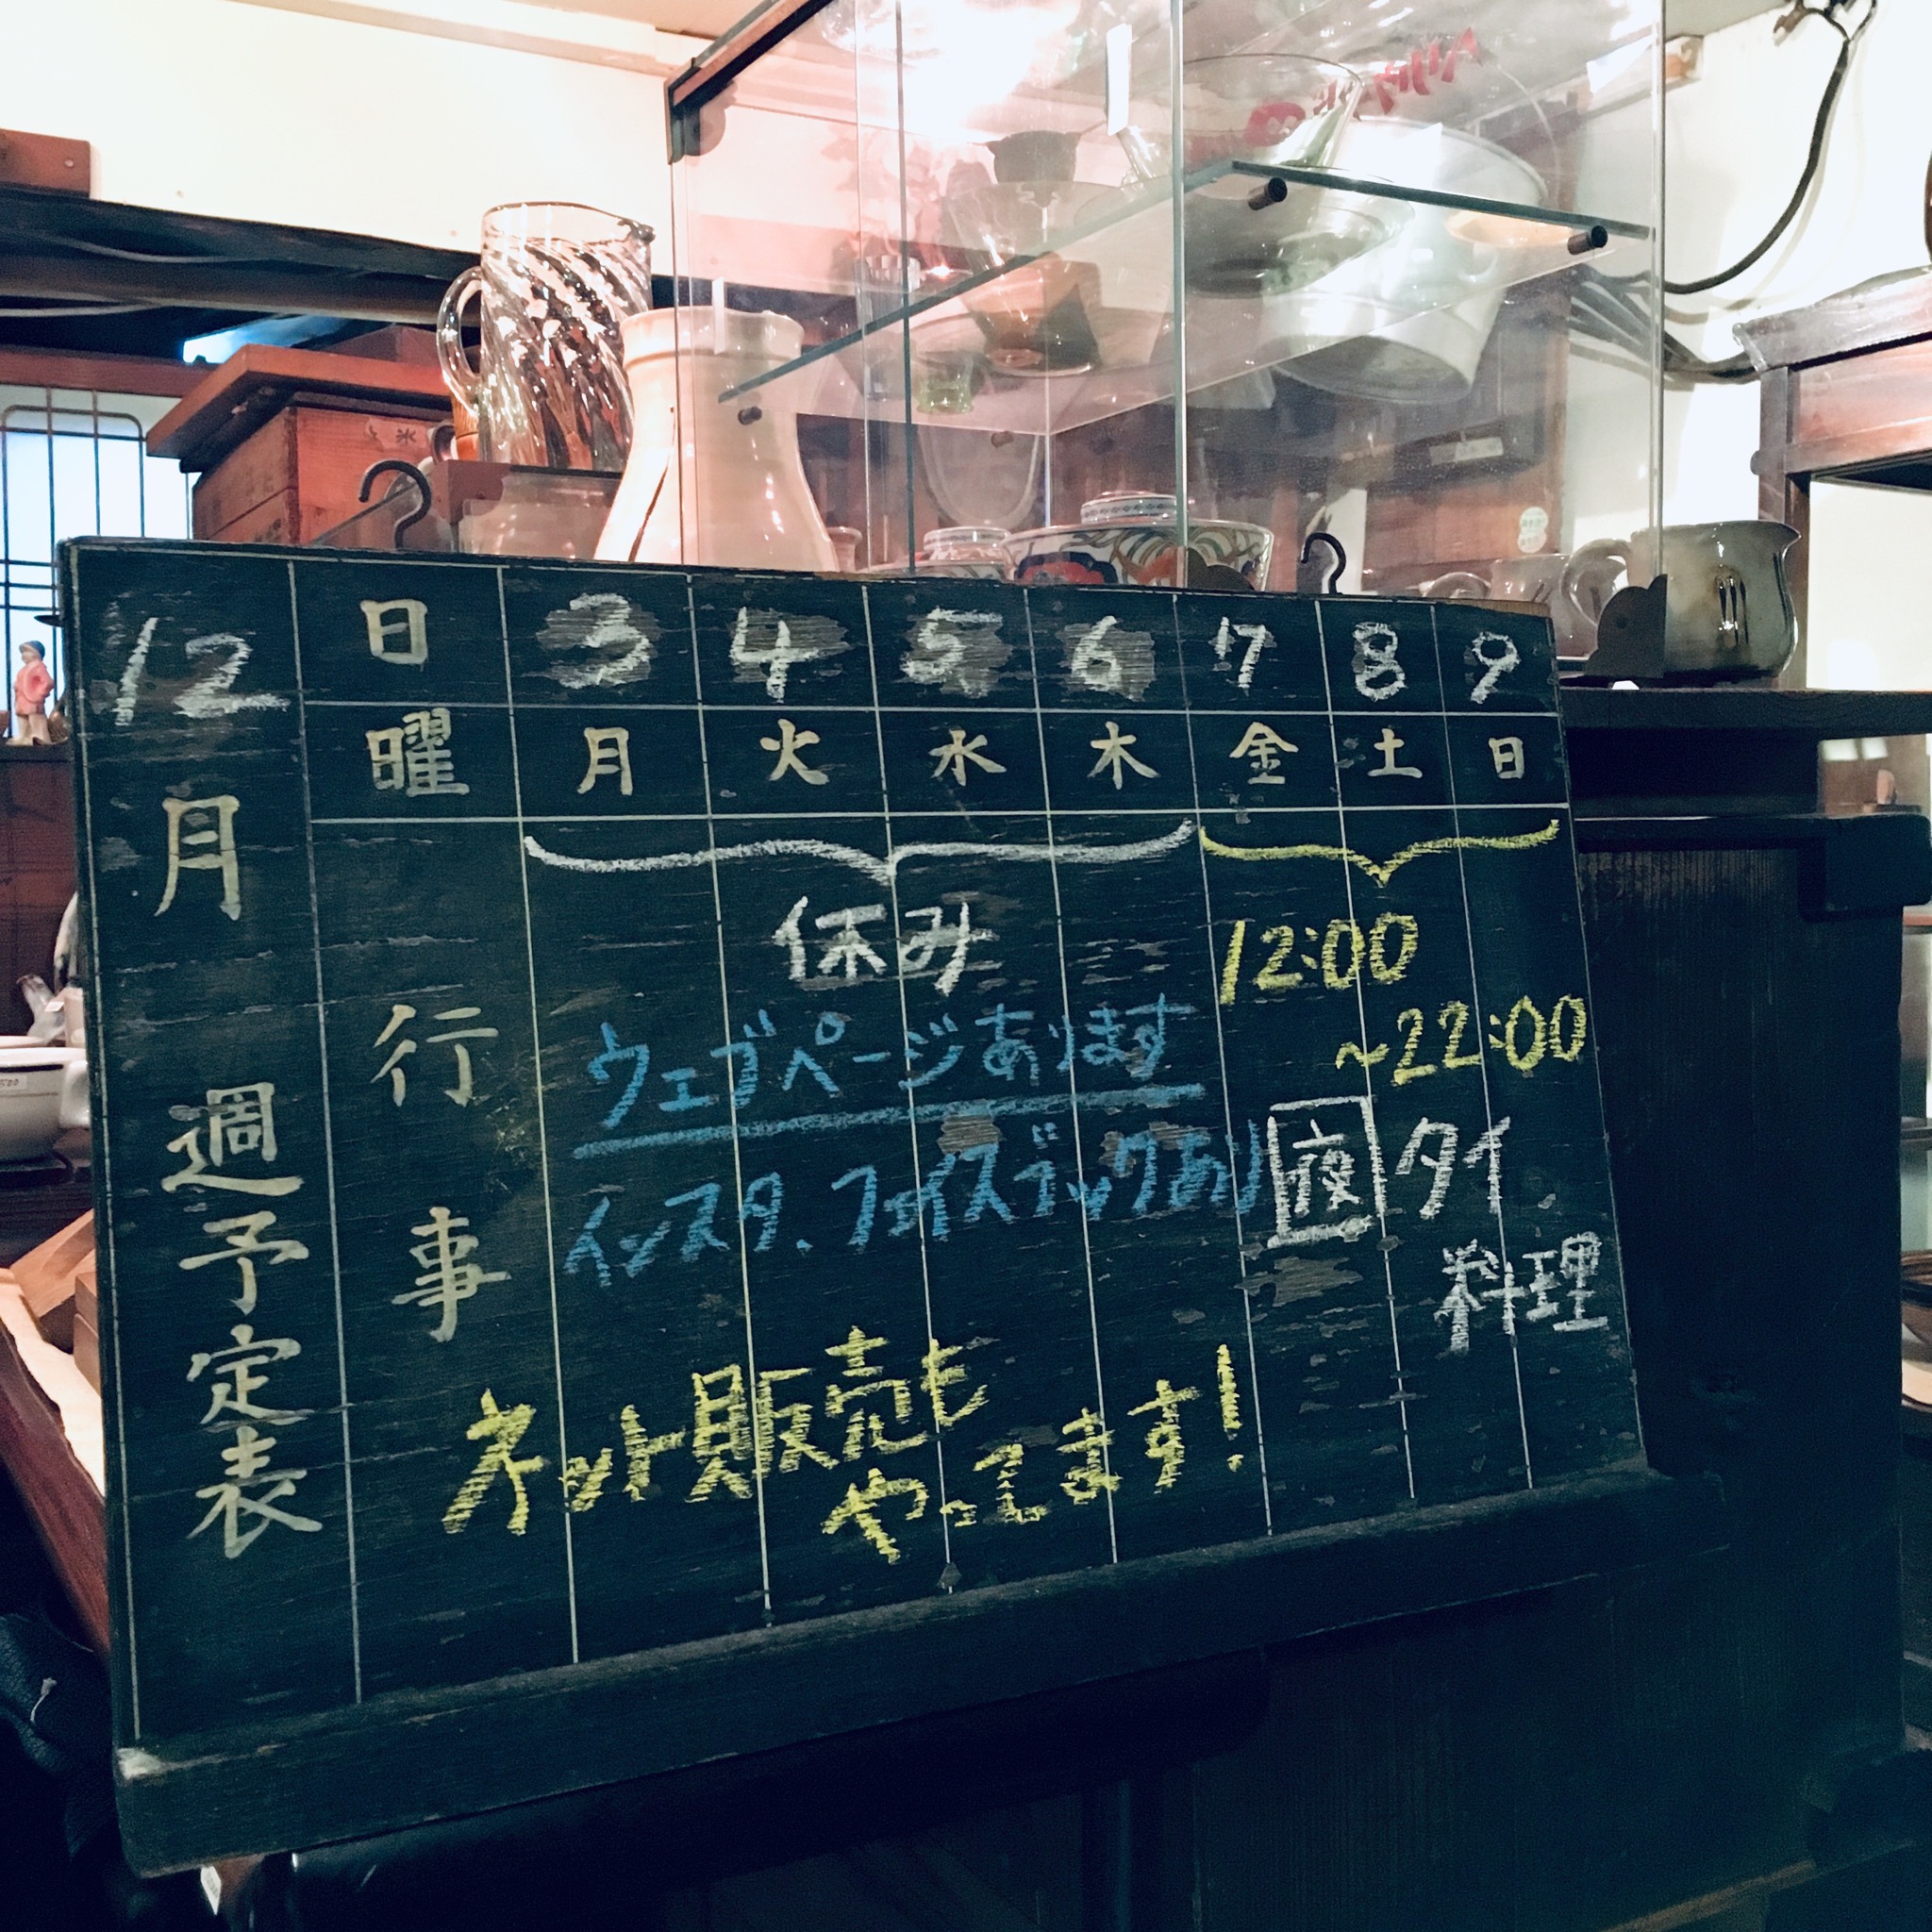 12月
週予定表
日 3 4 5 6 7 8 9
曜 月 火 水 木 金 土 日
行事
休み
ウェブページあります
インスタ、フェイスブックあり
ネット販売も
やってます!
12:00
~22:00
夜 タイ
料理